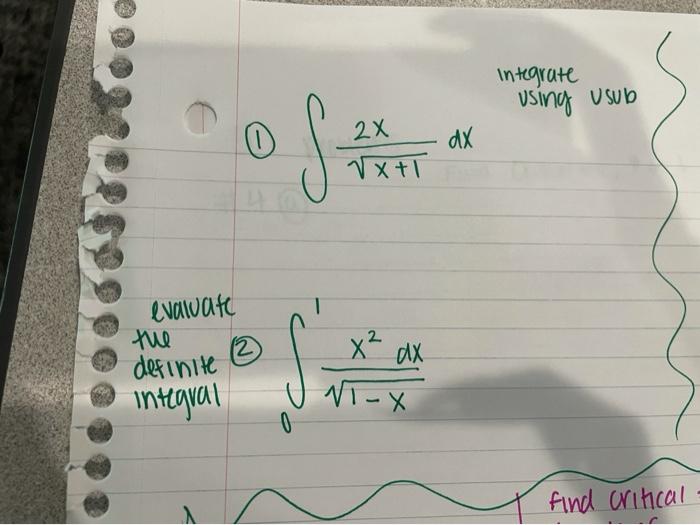 integrate
using usub
① ∫ 2x / √x+1 dx
evaluate
the
definite
integral
② ∫₀¹ x² dx / √1-x
find critical